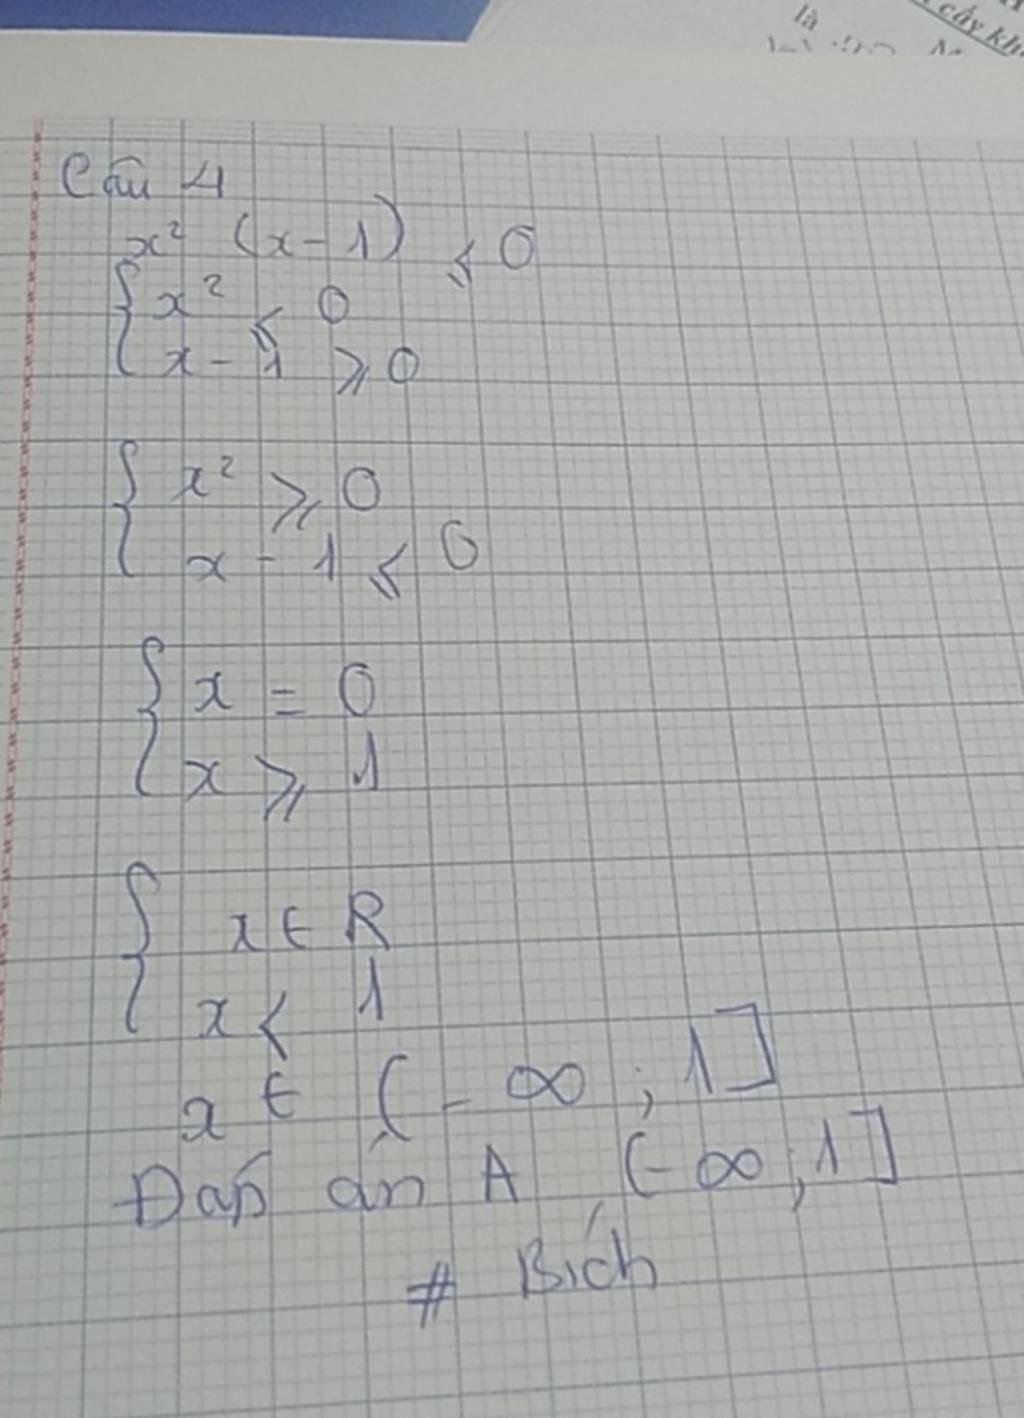 là
cấy
Câu 4
x² (x - 1) ⩽ 0
{ x² ⩽ 0
x - 1 ⩾ 0
{ x² ⩾ 0
x - 1 ⩽ 0
{ x = 0
x ⩾ 1
{ x ∈ R
x < 1
x ∈ (- ∞ ; 1]
Đáp án A (- ∞ ; 1]
# Bích